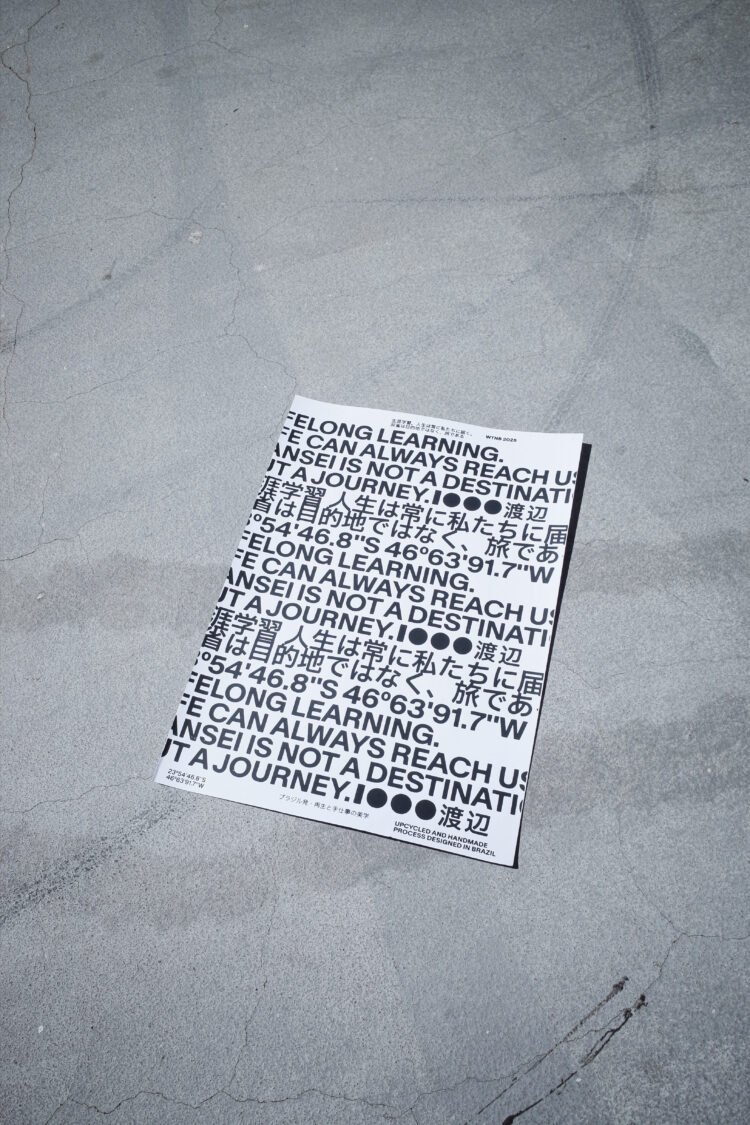 生涯学習。人生は常に私たちに届く。
完省は目的地ではなく、旅である
WTNB 2025
FELONG LEARNING.
FE CAN ALWAYS REACH US
ANSEI IS NOT A DESTINATI
UT A JOURNEY.
渡辺
涯学習 人生は常に私たちに届
省は目的地ではなく、旅であ
3°54'46.8"S 46°63'91.7"W
FELONG LEARNING.
FE CAN ALWAYS REACH US
ANSEI IS NOT A DESTINATI
UT A JOURNEY.
渡辺
涯学習 人生は常に私たちに届
省は目的地ではなく、旅であ
3°54'46.8"S 46°63'91.7"W
FELONG LEARNING.
FE CAN ALWAYS REACH US
ANSEI IS NOT A DESTINATI
UT A JOURNEY.
渡辺
23°54'46.8"S
46°63'91.7"W
ブラジル発・再生と手仕事の美学
UPCYCLED AND HANDMADE
PROCESS DESIGNED IN BRAZIL